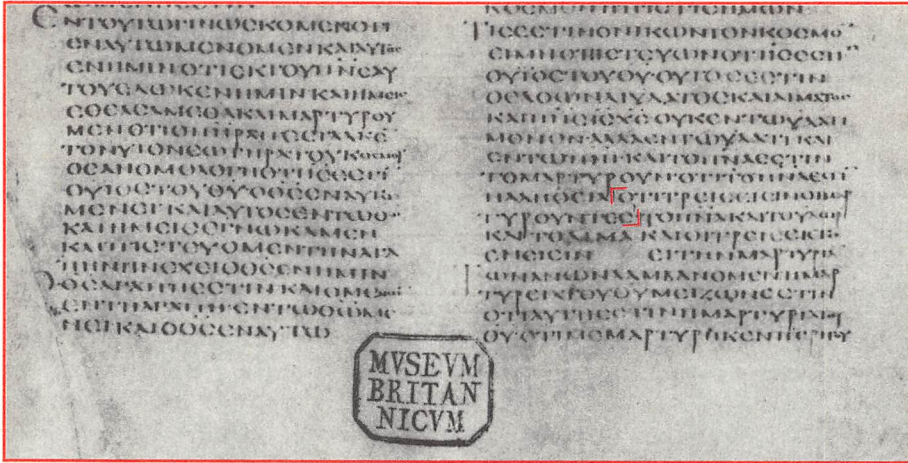 ΕΝΤΟΥΤΩΓΙΝΩϹΚΟΜΕΝΟΤΙ
ΕΝΑΥΤΩΜΕΝΟΜΕΝΚΑΙΑΥΤΟϹ
ΕΝΗΜΙΝΟΤΙΕΚΤΟΥΠΝϹΑΥ
ΤΟΥΕΔΩΚΕΝΗΜΙΝΚΑΙΗΜΕΙϹ
ΕΘΕΑϹΑΜΕΘΑΚΑΙΜΑΡΤΥΡΟΥ
ΜΕΝΟΤΙΟΠΗΡΑΠΕϹΤΑΛΚΕ
ΤΟΝΥΙΟΝϹΩΤΗΡΑΤΟΥΚΟϹΜΟΥ
ΟϹΑΝΟΜΟΛΟΓΗΟΤΙΙϹΕϹΤΙ
ΟΥΙΟϹΤΟΥΘΥΟΘϹΕΝΑΥΤΩ
ΜΕΝΕΙΚΑΙΑΥΤΟϹΕΝΤΩΘΩ
ΚΑΙΗΜΕΙϹΕΓΝΩΚΑΜΕΝ
ΚΑΙΠΙϹΤΕΥΟΜΕΝΤΗΝΑΓΑ
ΠΗΝΗΝΕΧΕΙΟΘϹΕΝΗΜΙΝ
ΟΘϹΑΓΑΠΗΕϹΤΙΝΚΑΙΟΜΕΝΩ
ΕΝΤΗΑΓΑΠΗΕΝΤΩΘΩΜΕ
ΝΕΙΚΑΙΟΘϹΕΝΑΥΤΩ
ΚΟϹΜΟΝΗΠΙϹΤΙϹΗΜΩΝ
ΤΙϹΕϹΤΙΝΟΝΙΚΩΝΤΟΝΚΟϹΜΟ
ΕΙΜΗΟΠΙϹΤΕΥΩΝΟΤΙΙϹΕϹΤΙ
ΟΥΙΟϹΤΟΥΘΥ·ΟΥΤΟϹΕϹΤΙΝ
ΟΕΛΘΩΝΔΙΥΔΑΤΟϹΚΑΙΑΙΜΑΤΟϹ
ΚΑΙΠΝϹΙϹΧϹΟΥΚΕΝΤΩΥΔΑΤΙ
ΜΟΝΟΝ·ΑΛΛΑΕΝΤΩΥΔΑΤΙΚΑΙ
ΕΝΤΩΠΝΙ·ΚΑΙΤΟΠΝΑΕϹΤΙΝ
ΤΟΜΑΡΤΥΡΟΥΝΟΤΙΤΟΠΝΑΕϹΤΙ
ΗΑΛΗΘΕΙΑΟΤΙΤΡΕΙϹΕΙϹΙΝΟΙΜΑΡ
ΤΥΡΟΥΝΤΕϹΤΟΠΝΑΚΑΙΤΟΥΔΩΡ
ΚΑΙΤΟΑΙΜΑ ΚΑΙΟΙΤΡΕΙϹΕΙϹΤΟ
ΕΝΕΙϹΙΝ ΕΙΤΗΝΜΑΡΤΥΡΙΑ
ΤΩΝΑΝΩΝΛΑΜΒΑΝΟΜΕΝΗΜΑΡ
ΤΥΡΙΑΤΟΥΘΥΜΕΙΖΩΝΕϹΤΙΝ
ΟΤΙΑΥΤΗΕϹΤΙΝΗΜΑΡΤΥΡΙΑΤΟΥ
ΘΥΟΤΙΜΕΜΑΡΤΥΡΗΚΕΝΠΕΡΙΤΟΥ
MVSEVM
BRITAN
NICVM